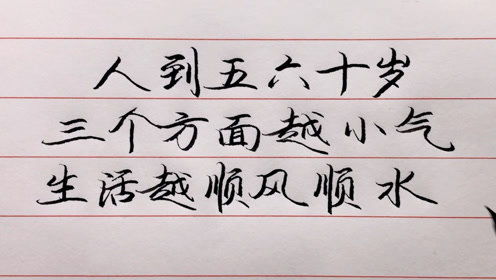 人到五六十岁
三个方面越小气
生活越顺风顺水